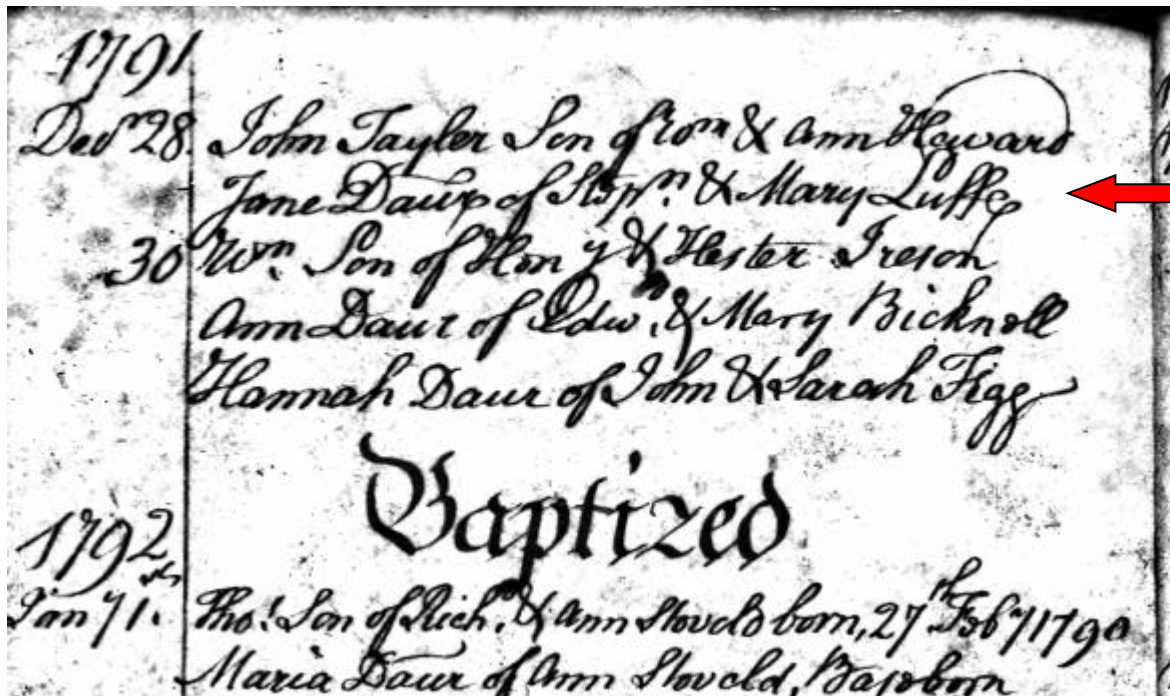 1791
Decr 28. John Tayler Son of Wm & Ann Heward
Jane Daur of Stepn. & Mary Luffe
30 Wm. Son of Hen y & Hester Ireson
Ann Daur of Edwd. & Mary Bicknell
Hannah Daur of John & Sarah Figg
Baptized
1792
Jan y 1. Thos. Son of Richd. & Ann Stoveld born, 27th Feb y 1790
Maria Daur of Ann Stoveld, Baseborn